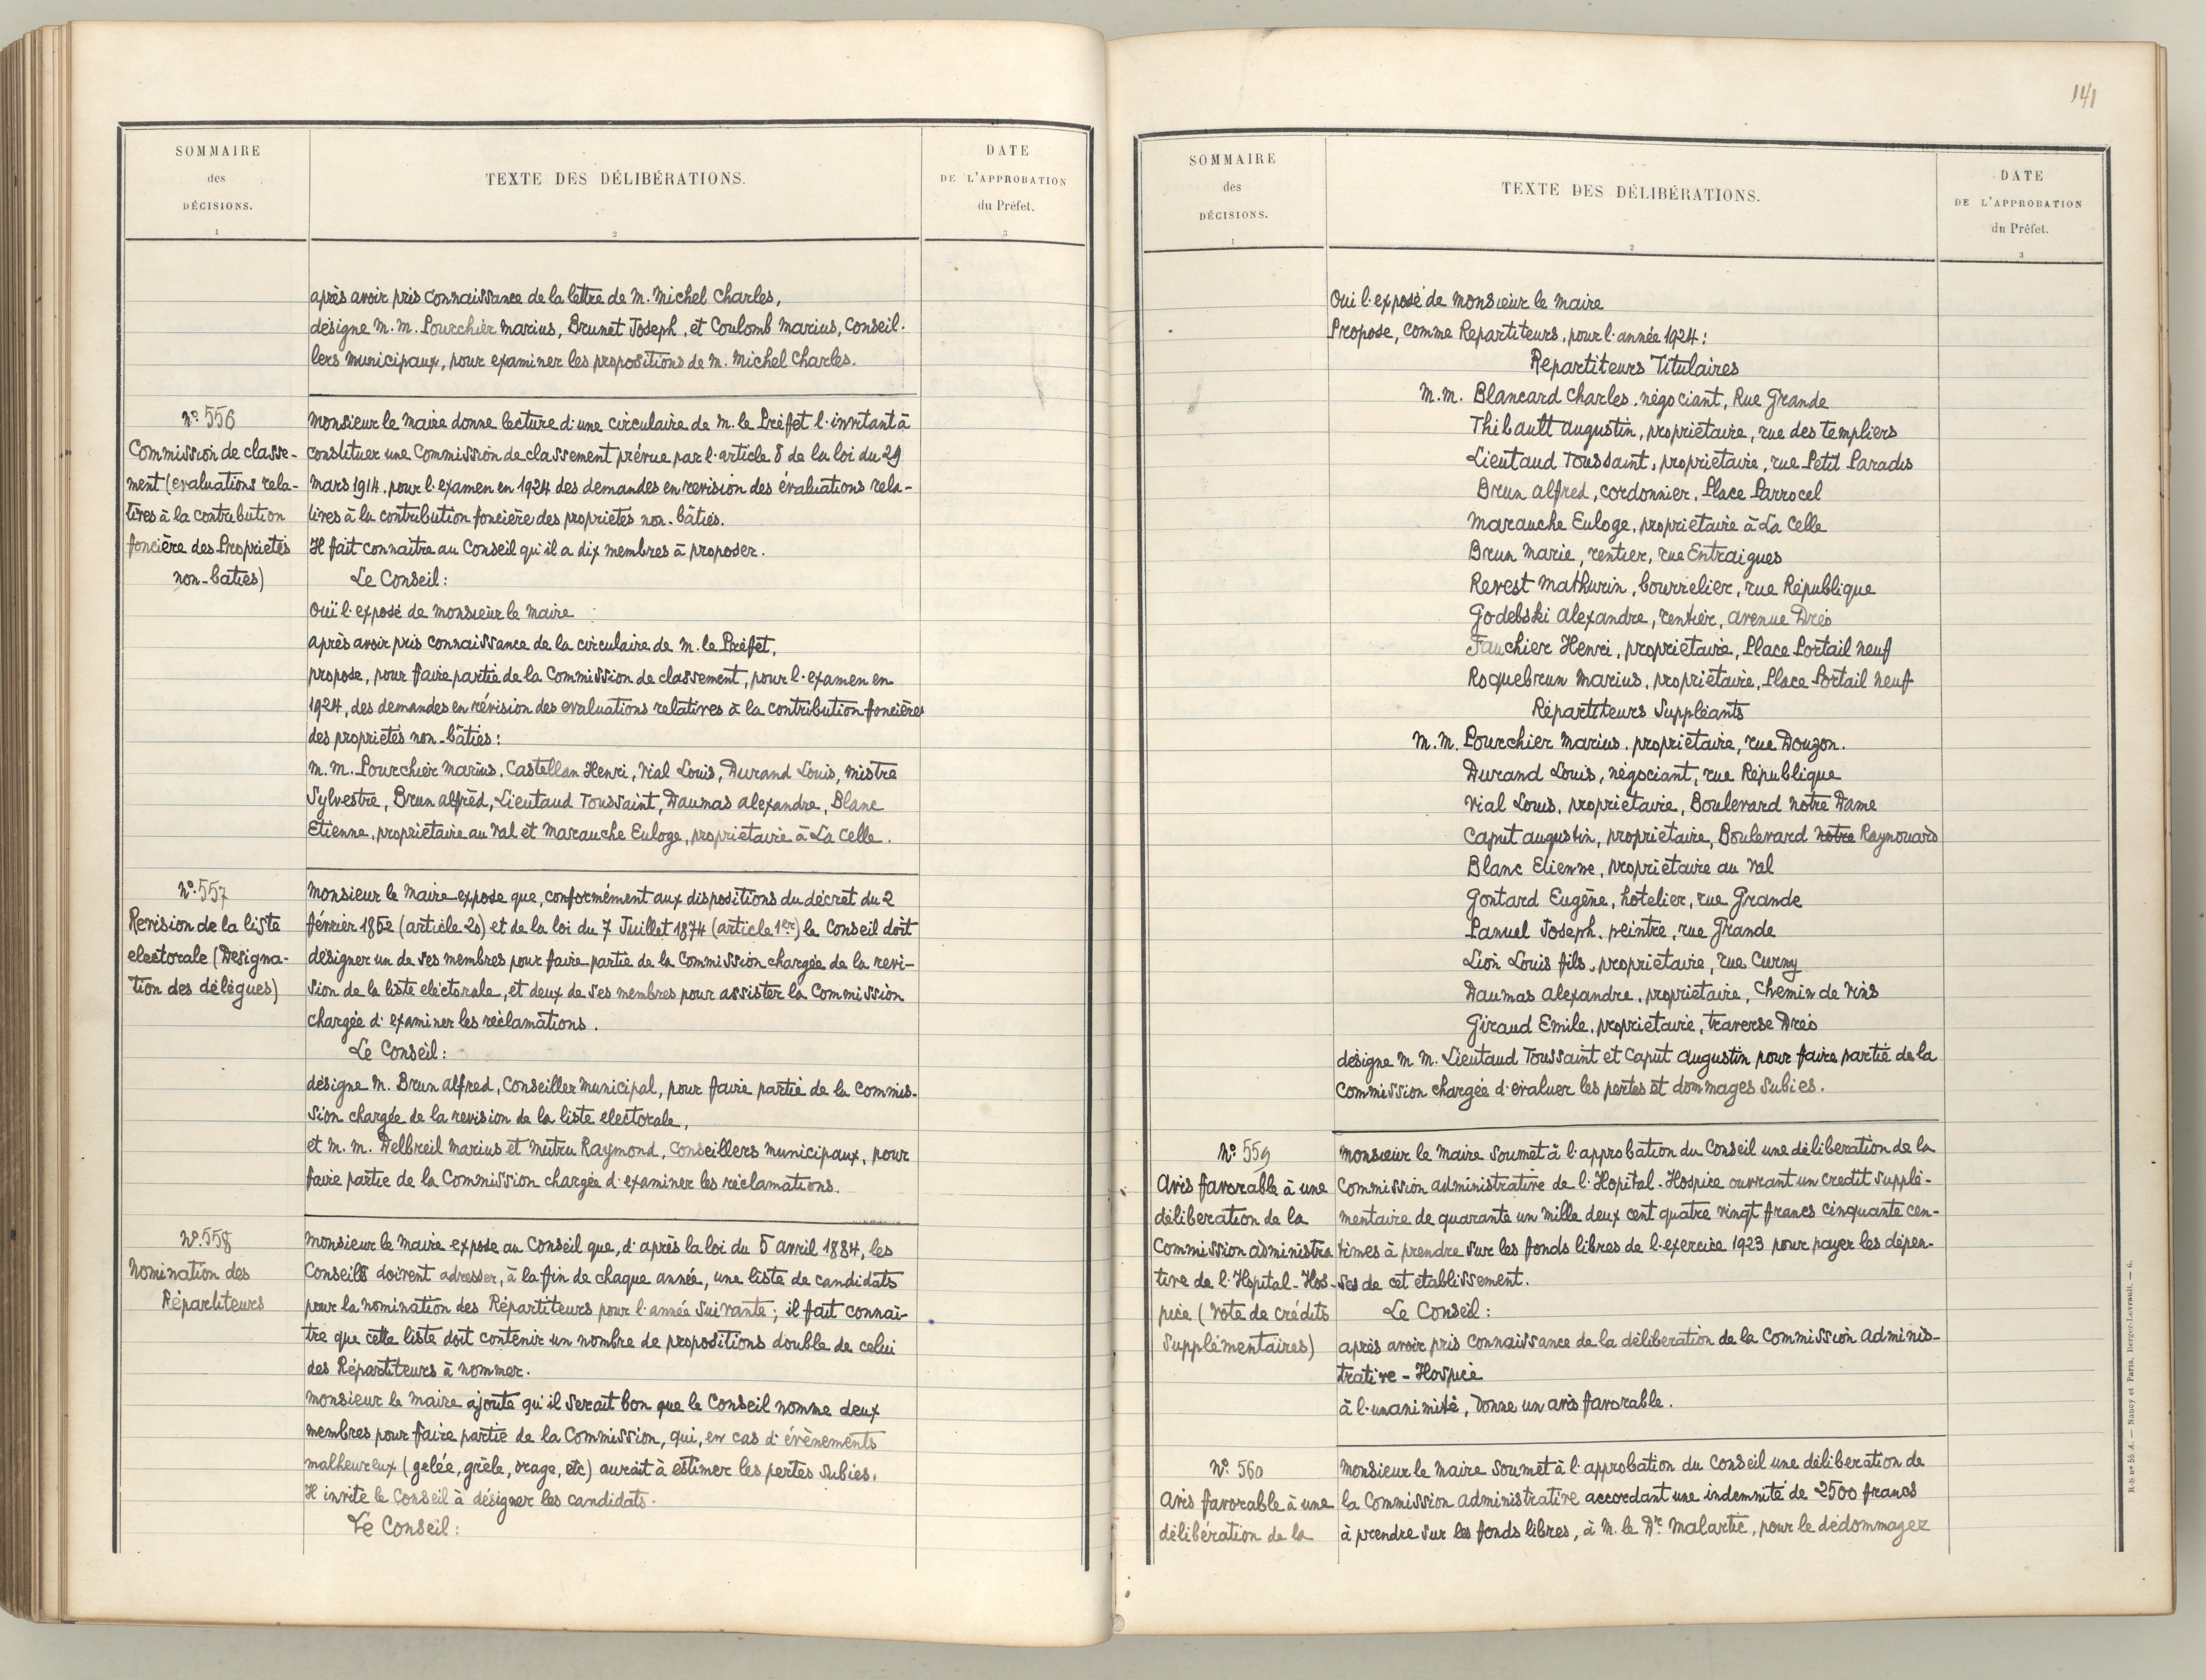 SOMMAIRE
des
DÉCISIONS.
1
TEXTE DES DÉLIBÉRATIONS.
2
DATE
DE L'APPROBATION
du Préfet.
3
après avoir pris connaissance de la lettre de M. Michel Charles,
désigne M.M. Pourchier Marius, Brunet Joseph, et Coulomb Marius, Conseil-
lers Municipaux, pour examiner les propositions de M. Michel Charles.
N° 556
Commission de classe-
ment (evaluations rela-
tives à la contribution
foncière des Propriétés
non-baties)
Monsieur le Maire donne lecture d'une circulaire de M. le Préfet l'invitant à
constituer une Commission de classement prévue par l'article 8 de la loi du 29
Mars 1914, pour l'examen en 1924 des demandes en revision des évaluations rela-
tives à la contribution foncière des propriétés non-bâties.
Il fait connaitre au Conseil qu'il a dix membres à proposer.
Le Conseil:
Ouï l'exposé de Monsieur le Maire
après avoir pris connaissance de la circulaire de M. le Préfet,
propose, pour faire partie de la Commission de classement, pour l'examen en
1924, des demandes en révision des evaluations relatives à la contribution foncières
des propriétés non-bâties:
M.M. Pourchier Marius, Castellan Henri, Vial Louis, Durand Louis, Mistre
Sylvestre, Brun Alfred, Lieutaud Toussaint, Daumas Alexandre, Blanc
Etienne, propriétaire au Val et Marauche Euloge, propriétaire à La Celle.
N° 557
Revision de la liste
electorale (Désigna-
tion des délégués)
Monsieur le Maire expose que, conformément aux dispositions du décret du 2
février 1852 (article 20) et de la loi du 7 Juillet 1874 (article 1er) le Conseil doit
désigner un de ses membres pour faire partie de la Commission chargée de la revi-
sion de la liste electorale, et deux de ses membres pour assister la Commission
chargée d'examiner les réclamations.
Le Conseil:
désigne M. Brun Alfred, Conseiller Municipal, pour faire partie de la Commis-
sion chargée de la revision de la liste electorale,
et M.M. Delbreil Marius et Mutru Raymond, Conseillers Municipaux, pour
faire partie de la Commission chargée d'examiner les réclamations.
N° 558
Nomination des
Répartiteurs
Monsieur le Maire expose au Conseil que, d'après la loi du 5 avril 1884, les
Conseils doivent adresser, à la fin de chaque année, une liste de candidats
pour la nomination des Répartiteurs pour l'année suivante; il fait connaî-
tre que cette liste doit contenir un nombre de propositions double de celui
des Répartiteurs à nommer.
Monsieur le Maire ajoute qu'il serait bon que le Conseil nomme deux
membres pour faire partie de la Commission, qui, en cas d'évènements
malheureux (gelée, grêle, orage, etc) aurait à estimer les pertes subies.
Il invite le Conseil à désigner les candidats.
Le Conseil:
141
SOMMAIRE
des
DÉCISIONS.
1
TEXTE DES DÉLIBÉRATIONS.
2
DATE
DE L'APPROBATION
du Préfet.
3
Oui l'exposé de Monsieur le Maire
Propose, comme Repartiteurs, pour l'année 1924:
Repartiteurs Titulaires
M.M. Blancard Charles, négociant, Rue Grande
Thibault Augustin, propriétaire, rue des Templiers
Lieutaud Toussaint, propriétaire, rue Petit Paradis
Brun Alfred, cordonnier, Place Parrocel
Marauche Euloge, propriétaire à La Celle
Brun Marie, rentier, rue Entraigues
Revest Mathurin, bourrelier, rue République
Godebski Alexandre, rentier, avenue Dréo
Fauchier Henri, propriétaire, Place Portail neuf
Roquebrun Marius, propriétaire, Place Portail neuf
Répartiteurs Suppléants
M.M. Pourchier Marius, propriétaire, rue Douzon.
Durand Louis, négociant, rue République
Vial Louis, propriétaire, Boulevard Notre Dame
Caput Augustin, propriétaire, Boulevard Notre Raynouard
Blanc Etienne, propriétaire au Val
Gontard Eugène, hotelier, rue Grande
Panuel Joseph, peintre, rue Grande
Lion Louis fils, propriétaire, rue Curny
Daumas Alexandre, propriétaire, Chemin de Vins
Giraud Emile, propriétaire, Traverse Dréo
désigne M.M. Lieutaud Toussaint et Caput Augustin pour faire partie de la
Commission chargée d'évaluer les pertes et dommages subies.
N° 559
Avis favorable à une
déliberation de la
Commission administra
tive de l'Hopital-Hos-
pice (Vote de crédits
supplémentaires)
Monsieur le Maire soumet à l'approbation du Conseil une déliberation de la
Commission administrative de l'Hopital-Hospice ouvrant un credit supplé-
mentaire de quarante un mille deux cent quatre vingt francs cinquante cen-
times à prendre sur les fonds libres de l'exercice 1923 pour payer les dépen-
ses de cet etablissement.
Le Conseil:
après avoir pris connaissance de la déliberation de la Commission adminis-
trative-Hospice
à l'unanimité, Donne un avis favorable.
N° 560
Avis favorable à une
délibération de la
Monsieur le Maire soumet à l'approbation du Conseil une déliberation de
la Commission administrative accordant une indemnité de 2500 francs
à prendre sur les fonds libres, à M. le Dr Malartic, pour le dédommager
R-S n° 55 A. — Nancy et Paris, Berger-Levrault. — 6.